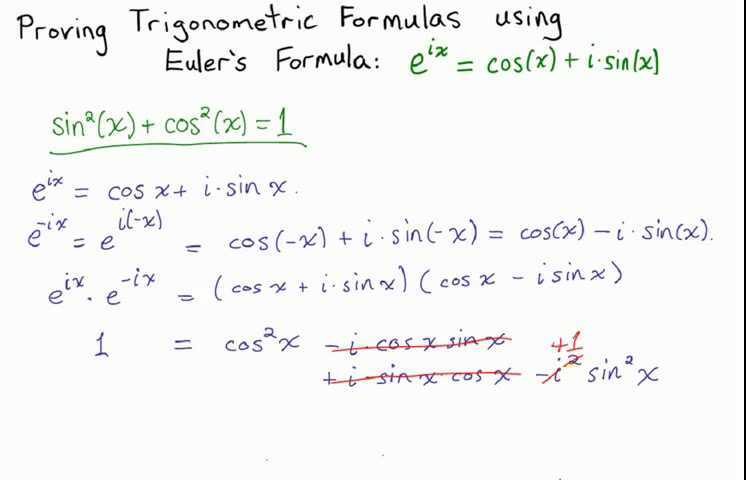 Proving Trigonometric Formulas using
Euler's Formula: e^{ix} = cos(x) + i·sin(x)
sin²(x) + cos²(x) = 1
e^{ix} = cos x + i·sin x.
e^{-ix} = e^{i(-x)} = cos(-x) + i·sin(-x) = cos(x) - i·sin(x).
e^{ix}·e^{-ix} = (cos x + i·sin x)(cos x - i sin x)
1 = cos²x - i·cos x sin x +1
+ i·sin x cos x - i² sin²x